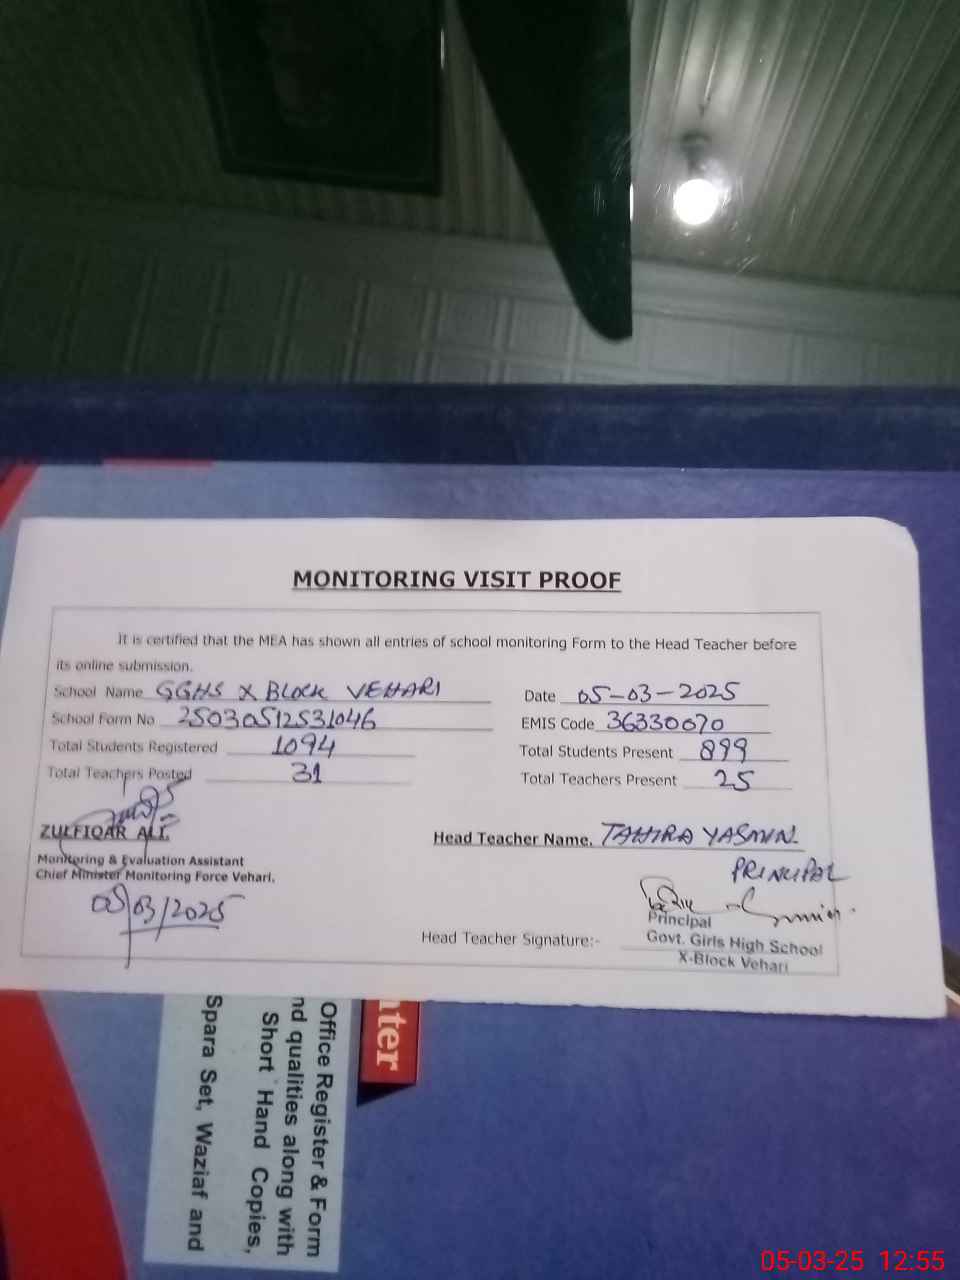 MONITORING VISIT PROOF
It is certified that the MEA has shown all entries of school monitoring Form to the Head Teacher before
its online submission.
School Name GGHS X BLOCK VEHARI Date 05-03-2025
School Form No 25030512531046 EMIS Code 36330070
Total Students Registered 1094 Total Students Present 899
Total Teachers Posted 31 Total Teachers Present 25
ZULFIQAR ALI. Head Teacher Name. TAHIRA YASMIN
Monitoring & Evaluation Assistant PRINCIPAL
Chief Minister Monitoring Force Vehari.
05/03/2025
Principal
Head Teacher Signature:- Govt. Girls High School
X-Block Vehari
nter
Office Register & Form
nd qualities along with
Short Hand Copies,
Spara Set, Waziaf and
05-03-25 12:55